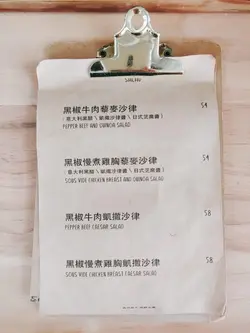 黑椒牛肉藜麥沙律 54
(意大利黑醋 \ 凱撒沙律醬 \ 日式芝麻醬)
PEPPER BEEF AND QUINOA SALAD
黑椒慢煮雞胸藜麥沙律 54
(意大利黑醋 \ 凱撒沙律醬 \ 日式芝麻醬)
SOUS VIDE CHICKEN BREAST AND QUINOA SALAD
黑椒牛肉凱撒沙律 58
PEPPER BEEF CAESAR SALAD
黑椒慢煮雞胸凱撒沙律 58
SOUS VIDE CHICKEN BREAST CAESAR SALAD